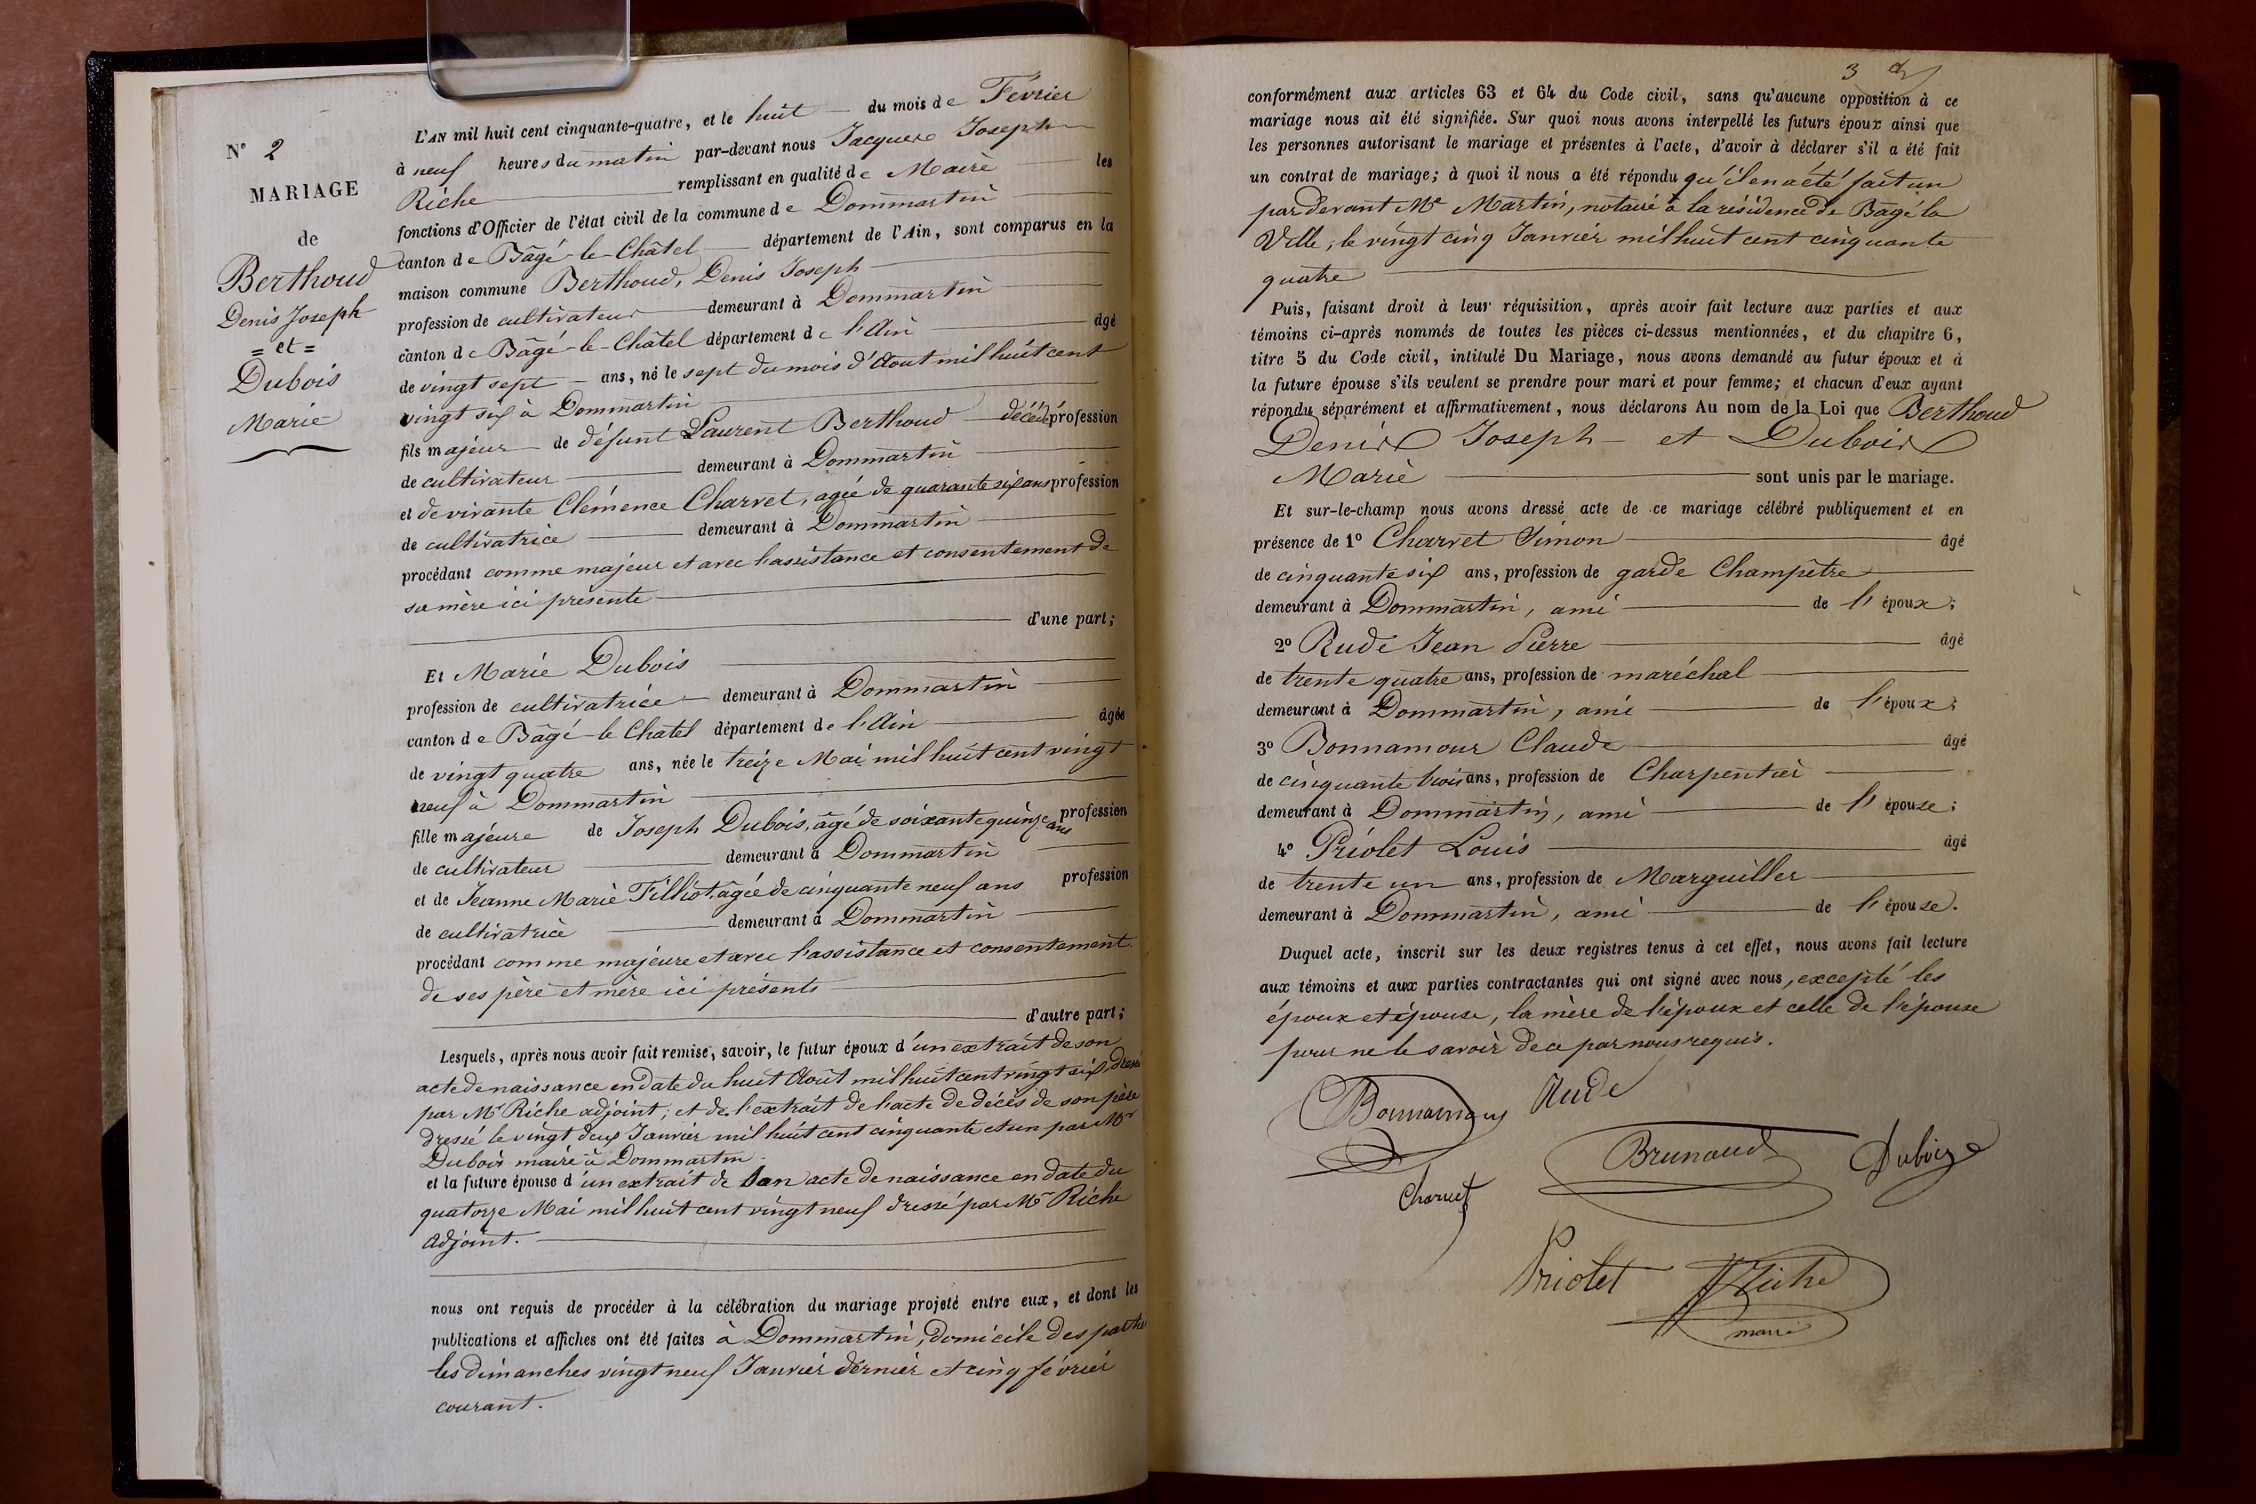 N° 2
MARIAGE
de
Berthoud
Denis Joseph
= et =
Dubois
Marie
L'AN mil huit cent cinquante-quatre, et le huit du mois de Février
à neuf heures du matin par-devant nous Jacques Joseph
Riche remplissant en qualité de Maire les
fonctions d'Officier de l'état civil de la commune de Dommartin
canton de Bâgé-le-Châtel département de l'Ain, sont comparus en la
maison commune Berthoud, Denis Joseph
profession de cultivateur demeurant à Dommartin
canton de Bâgé-le-Châtel département de l'Ain âgé
de vingt sept ans, né le sept du mois d'Aout mil huit cent
vingt six à Dommartin
fils majeur de défunt Laurent Berthoud décédé profession
de cultivateur demeurant à Dommartin
et de vivante Clémence Charvet, agée de quarante six ans profession
de cultivatrice demeurant à Dommartin
procédant comme majeur et avec l'assistance et consentement de
sa mère ici présente
d'une part;
Et Marie Dubois
profession de cultivatrice demeurant à Dommartin
canton de Bâgé-le Chatel département de l'Ain âgée
de vingt quatre ans, née le treize Mai mil huit cent vingt
neuf à Dommartin
fille majeure de Joseph Dubois, âgé de soixante quinze ans profession
de cultivateur demeurant à Dommartin
et de Jeanne Marie Filliot, âgée de cinquante neuf ans profession
de cultivatrice demeurant à Dommartin
procédant comme majeure et avec l'assistance et consentement
de ses père et mère ici présents
d'autre part;
Lesquels, après nous avoir fait remise, savoir, le futur époux d'un extrait de son
acte de naissance en date du huit Août mil huit cent vingt six, dressé
par Mr Riche adjoint; et de l'extrait de l'acte de décès de son père
dressé le vingt deux Janvier mil huit cent cinquante et un par Mr
Dubois maire à Dommartin.
et la future épouse d'un extrait de son acte de naissance en date du
quatorze Mai mil huit cent vingt neuf dressé par Mr Riche
adjoint.
nous ont requis de procéder à la célébration du mariage projeté entre eux, et dont les
publications et affiches ont été faites à Dommartin, domicile des parties
les dimanches vingt neuf Janvier dernier et cinq février
courant.
3
conformément aux articles 63 et 64 du Code civil, sans qu'aucune opposition à ce
mariage nous ait été signifiée. Sur quoi nous avons interpellé les futurs époux ainsi que
les personnes autorisant le mariage et présentes à l'acte, d'avoir à déclarer s'il a été fait
un contrat de mariage; à quoi il nous a été répondu qu'il en a été fait un
par devant Me Martin, notaire à la résidence de Bâgé la
Ville, le vingt cinq Janvier mil huit cent cinquante
quatre
Puis, faisant droit à leur réquisition, après avoir fait lecture aux parties et aux
témoins ci-après nommés de toutes les pièces ci-dessus mentionnées, et du chapitre 6,
titre 5 du Code civil, intitulé Du Mariage, nous avons demandé au futur époux et à
la future épouse s'ils veulent se prendre pour mari et pour femme; et chacun d'eux ayant
répondu séparément et affirmativement, nous déclarons Au nom de la Loi que Berthoud
Denis Joseph et Dubois
Marie sont unis par le mariage.
Et sur-le-champ nous avons dressé acte de ce mariage célébré publiquement et en
présence de 1° Charvet Simon âgé
de cinquante six ans, profession de garde Champêtre
demeurant à Dommartin, ami de l'époux;
2° Rude Jean Pierre âgé
de trente quatre ans, profession de maréchal
demeurant à Dommartin, ami de l'époux;
3° Bonnamour Claude âgé
de cinquante trois ans, profession de Charpentier
demeurant à Dommartin, ami de l'épouse;
4° Priolet Louis âgé
de trente un ans, profession de Marguiller
demeurant à Dommartin, ami de l'épouse.
Duquel acte, inscrit sur les deux registres tenus à cet effet, nous avons fait lecture
aux témoins et aux parties contractantes qui ont signé avec nous, excepté les
époux et épouse, la mère de l'époux et celle de l'épouse
pour ne le savoir de ce par nous requis.
Bonnamour Rude
Brunaud Duboize
Charvet
Priolet JJ Riche
maire